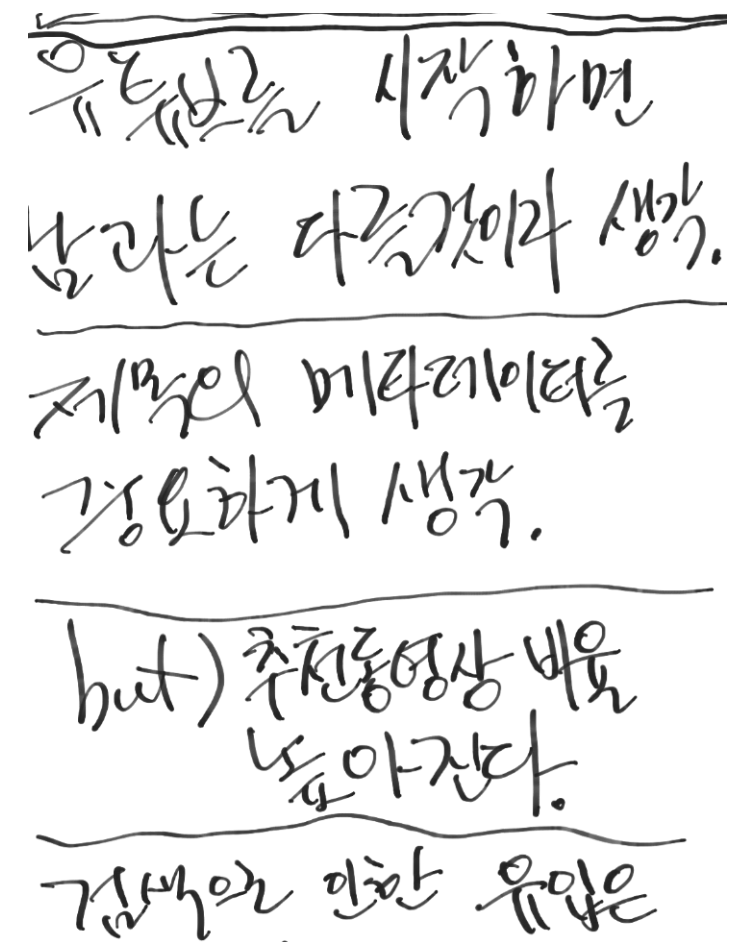 유튜브를 시작하면
남과는 다를것이라 생각.
제목의 메타데이터를
중요하게 생각.
but) 추천동영상 비율
높아진다.
검색으로 인한 유입은